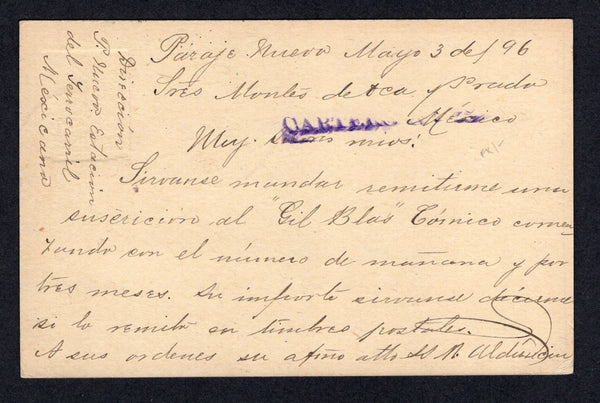 Paraje Nuevo Mayo 3 de/96
Sres Montes de Oca y Prado
México
CARTERO
Muy Sres mios:
Sirvanse mandar remitirme una
suscrición al "Gil Blas" Cómico comen
zando con el número de mañana y por
tres meses. Su importe sirvanse decirme
si lo remito en timbres postales.
A sus ordenes su afmo atto S.
Dirección
P. Nuevo Estación
del Ferrocarril
Mexicano